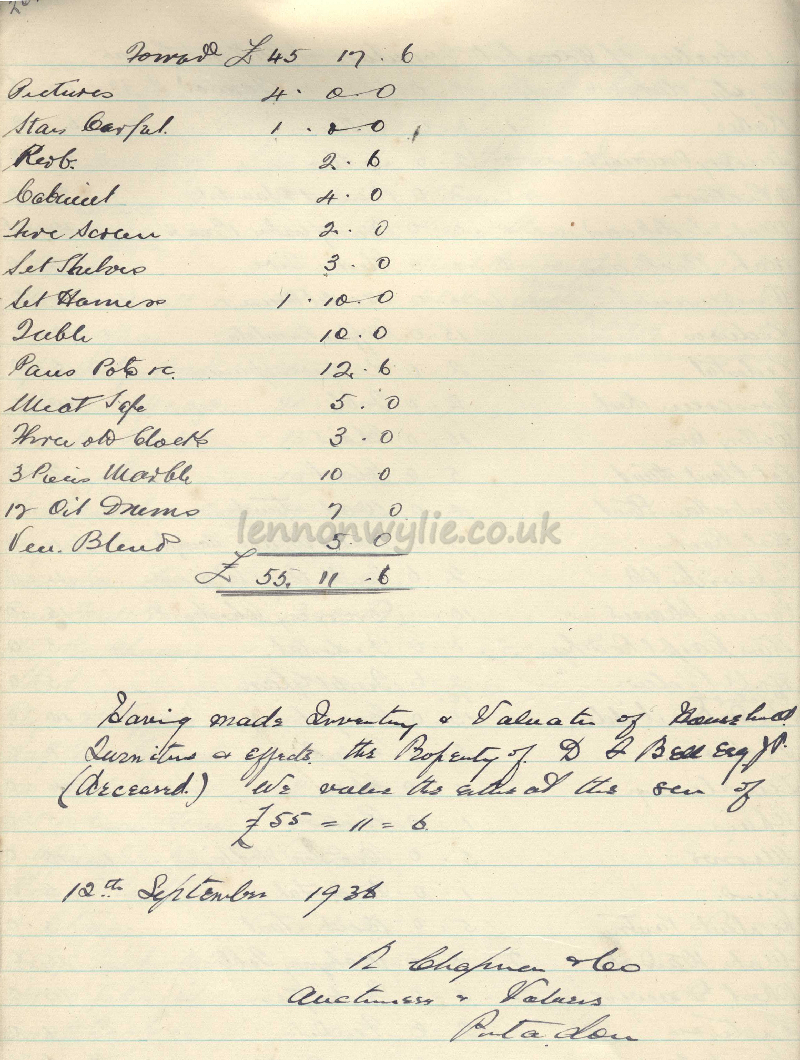 Forwd £ 45 17 . 6
Pictures 4 . 0 . 0
Stair Carpet. 1 . 0 . 0
Reob. 2 . 6
Cabinet 4 . 0
Fire Screen 2 . 0
Set Shelves 3 . 0
Set Harness 1 . 10 . 0
Table 10 . 0
Pans Pots &c. 12 . 6
Meat Safe 5 . 0
Three old Clocks 3 . 0
3 Pieces Marble 10 0
12 Oil Drums 7 0
Ven. Blind 5 . 0
£ 55 . 11 . 6
lennonwylie.co.uk
Having made Inventory & Valuation of Household
Furniture & effects, the Property of D Bell Esq JP.
(deceased.) We value the entire at the sum of
£55 = 11 = 6
12th September 1936
R Chapman & Co
Auctioneers & Valuers
Portadown